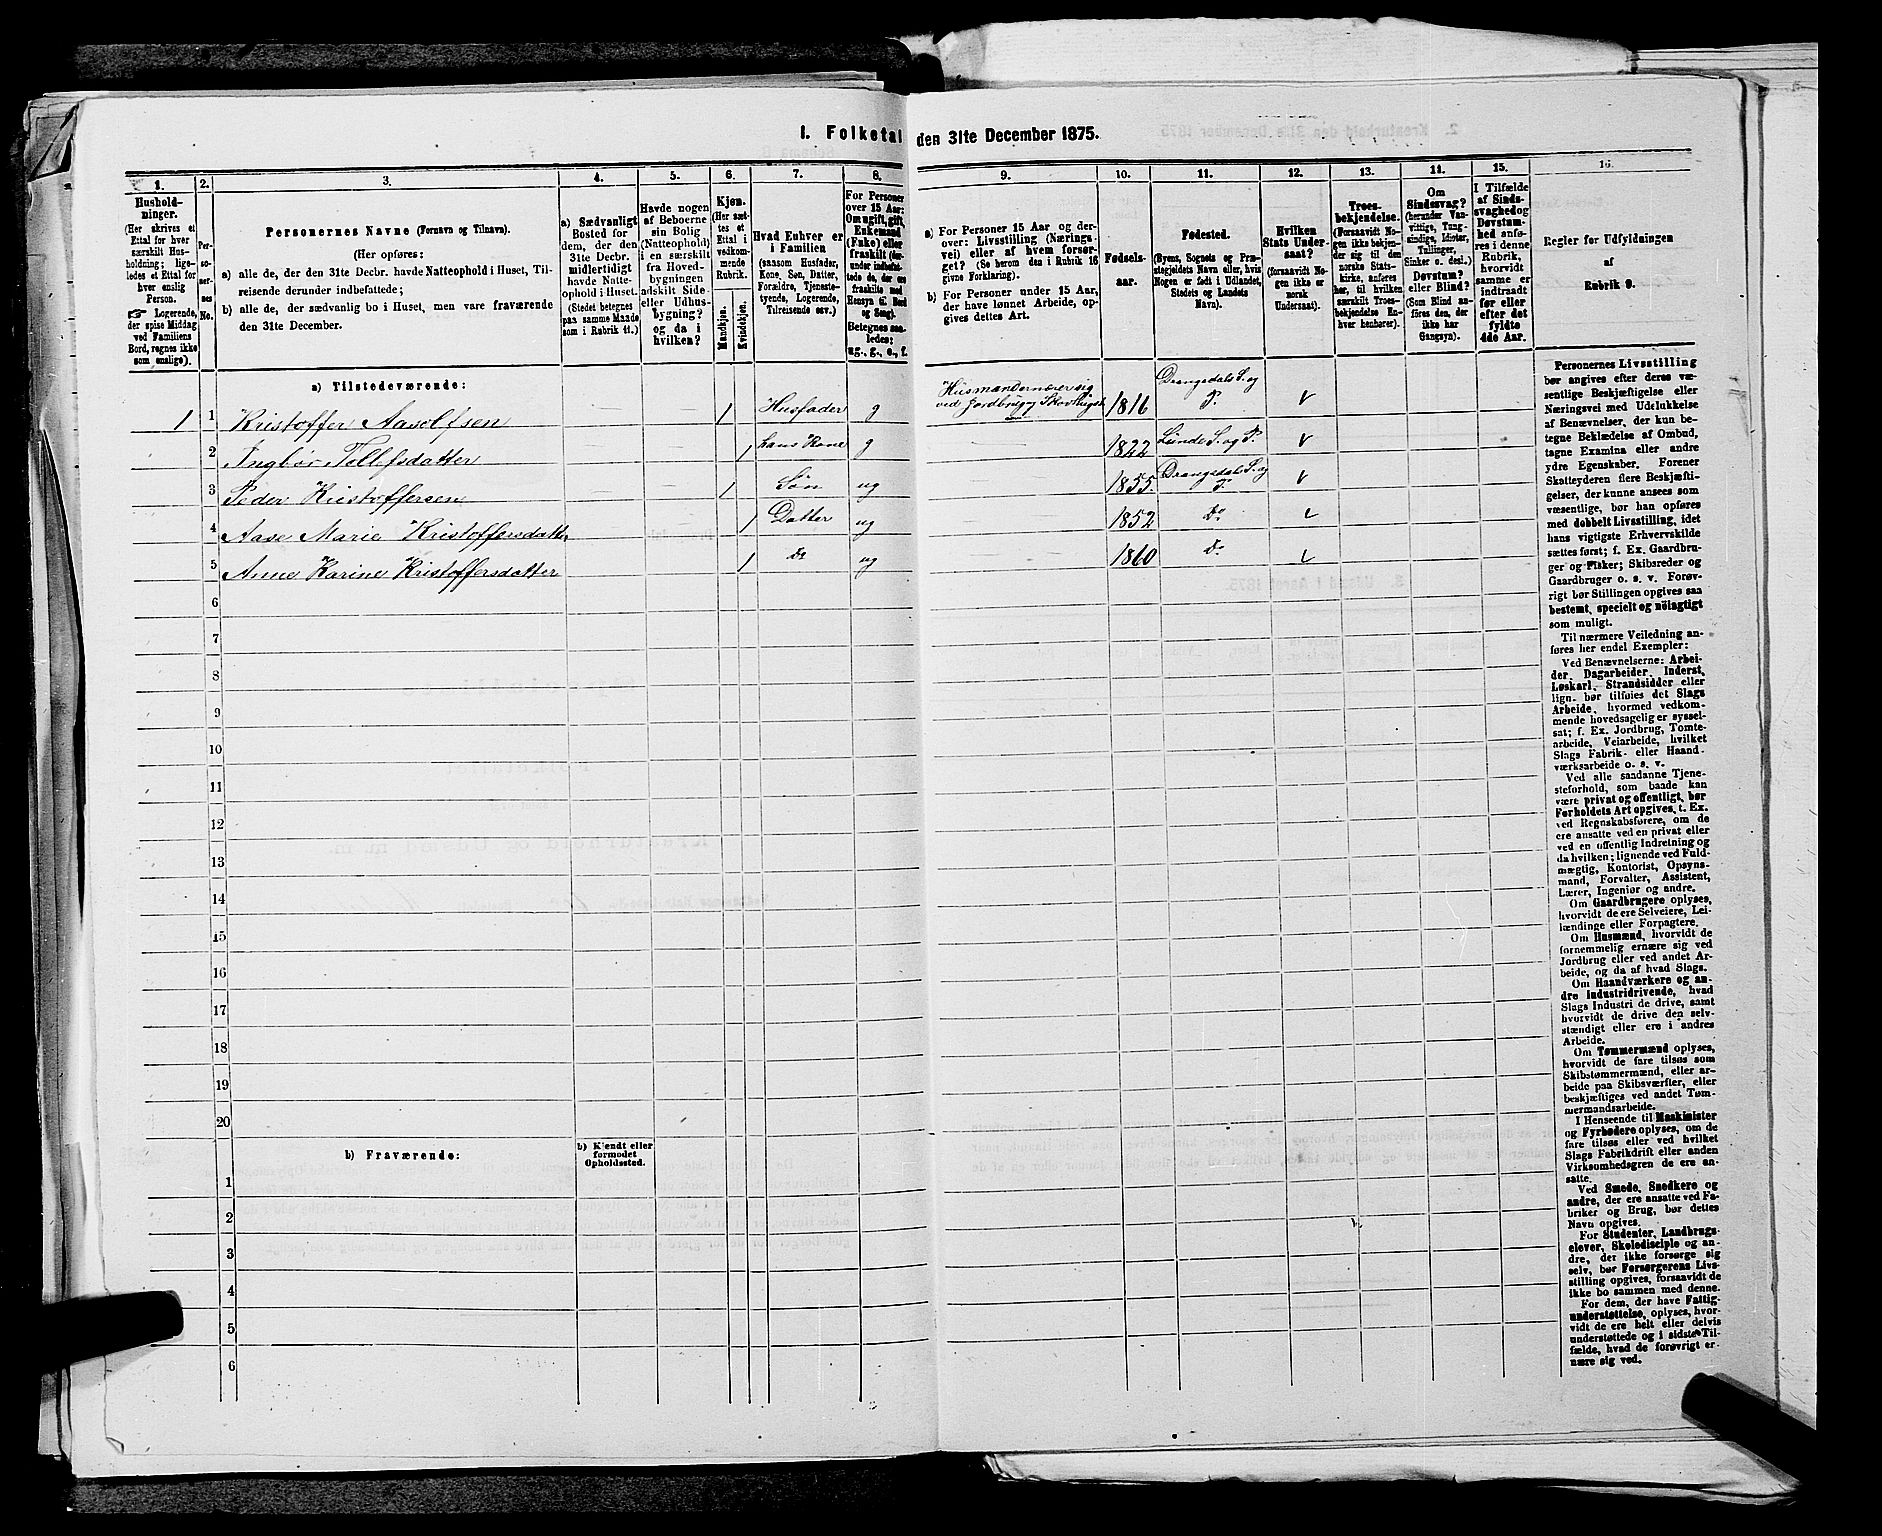 1. Folketal den 31te December 1875.
1.
Hushold-
ninger.
(Her skrives et
Ettal for hver
særskilt Hus-
holdning; lige-
ledes et Ettal for
hver enslig
Person.
☞ Logerende,
der spise Middag
ved Familiens
Bord, regnes ikke
som enslige).
2.
Per-
so-
ner-
nes
No.
3.
Personernes Navne (Fornavn og Tilnavn).
(Her opføres:
a) alle de, der den 31te Decbr. havde Natteophold i Huset, Til-
reisende derunder indbefattede;
b) alle de, der sædvanlig bo i Huset, men vare fraværende
den 31te December.
4.
a) Sædvanligt
Bosted for
dem, der den
31te Decbr.
midlertidigt
havde Natte-
ophold i Huset.
(Stedet betegnes
paa samme Maade
som i Rubrik 11.)
5.
Havde nogen
af Beboerne
sin Bolig
(Natteophold)
i en særskilt
fra Hoved-
bygningen
adskilt Side-
eller Udhus-
bygning?
og da i
hvilken?
6.
Kjøn.
(Her sæt-
tes et
Ettal i
vedkom-
mende
Rubrik.
Mandkjøn.
Kvindekjøn.
7.
Hvad Enhver er
i Familien
(saasom Husfader,
Kone, Søn, Datter,
Forældre, Tjeneste-
tyende, Logerende,
Tilreisende osv.)
8.
For Personer
over 15 Aar:
Om ugift, gift,
Enkemand
(Enke) eller
fraskilt (der-
under indbefat-
tede de, der ere
fraskilte med
Hensyn til Bord
og Seng).
Betegnes saa-
ledes:
ug., g., e., f.
9.
a) For Personer 15 Aar og der-
over: Livsstilling (Nærings-
vei) eller af hvem forsør-
get? (Se herom den i Rubrik 16
givne Forklaring).
b) For Personer under 15 Aar,
der have lønnet Arbeide, op-
gives dettes Art.
10.
Fødsels-
aar.
11.
Fødested.
(Byens, Sognets og Præ-
stegjeldets Navn eller, hvis
Nogen er født i Udlandet,
Stedets og Landets
Navn).
12.
Hvilken
Stats Under-
saat?
(forsaavidt No-
gen ikke er
norsk
Undersaat).
13.
Troes-
bekjendelse.
(Forsaavidt No-
gen ikke bekjen-
der sig til den
norske Stats-
kirke, anføres
her, til hvilken
særskilt Troes-
bekjendelse En-
hver henhører).
14.
Om
Sindssvag?
(herunder Van-
vittige, Tung-
sindige, Idioter,
Tullinger,
Sinker o. desl.)
Døvstum?
eller Blind?
(Som Blind an-
føres den, der
ikke har
Gangsyn).
15.
I Tilfælde
af Sinds-
svaghed og
Døvstum-
hed anfø-
res i denne
Rubrik,
hvorvidt
samme er
indtraadt
før eller
efter det
fyldte
4de Aar.
16.
Regler for Udfyldningen
af
Rubrik 9.
a) Tilstedeværende:
1 1 Kristoffer Aasolfsen 1 Husfader g Husmand ernærer sig
ved Jordbrug og Skovhugst 1816 Drangedals S. og
P. v
2 Ingbør Tellefsdatter 1 hans Kone g 1822 Lunde S. og P. v
3 Peder Kristoffersen 1 Søn ug 1855. Drangedals S. og
P. v
4 Aase Marie Kristoffersdatter 1 Datter ug 1852 Do v
5 Anne Karine Kristoffersdatter 1 do ug 1860 Do v
6
7
8
9
10
11
12
13
14
15
16
17
18
19
20
b) Fraværende:
b) Kjendt eller
formodet
Opholdssted.
1
2
3
4
5
6
Personernes Livsstilling
bør angives efter deres væ-
sentlige Beskjæftigelse eller
Næringsvei med Udelukkelse
af Benævnelser, der kun be-
tegne Beklædelse af Ombud,
tagne Examina eller andre
ydre Egenskaber. Forener
Skatteyderen flere Beskjæfti-
gelser, der kunne ansees som
væsentlige, bør han opføres
med dobbelt Livsstilling, idet
hans vigtigste Erhvervskilde
sættes først; f. Ex. Gaardbru-
ger og Fisker; Skibsreder og
Gaardbruger o. s. v. Forøv-
rigt bør Stillingen opgives saa
bestemt, specielt og nöiagtigt
som muligt.
Til nærmere Veiledning an-
føres her endel Exempler:
Ved Benævnelserne: Arbei-
der, Dagarbeider, Inderst,
Løskarl, Strandsidder eller
lign. bør tilføies det Slags
Arbeide, hvormed vedkom-
mende hovedsagelig er syssel-
sat; f. Ex. Jordbrug, Tomte-
arbeide, Veiarbeide, hvilket
Slags Fabrik- eller Haand-
værksarbeide o. s. v.
Ved alle saadanne Tjene-
steforhold, som baade kan
være privat og offentligt, bør
Forholdets Art opgives, t. Ex.
ved Regnskabsførere, om de
ere ansatte ved en privat eller
ved en offentlig Indretning og
da hvilken; lignende ved Fuld-
mægtig, Kontorist, Opsyns-
mand, Forvalter, Assistent,
Lærer, Ingeniør og andre.
Om Gaardbrugere oplyses,
hvorvidt de ere Selveiere, Lei-
lændinge eller Forpagtere.
Om Husmænd, hvorvidt de
fornemmelig ernære sig ved
Jordbrug eller ved andet Ar-
beide, og da af hvad Slags.
Om Haandværkere og an-
dre Industridrivende, hvad
Slags Industri de drive, samt
hvorvidt de drive den selv-
stændigt eller ere i andres
Arbeide.
Om Tømmermænd oplyses,
hvorvidt de fare tilsøs som
Skibstømmermænd, eller ar-
beide paa Skibsværfter, eller
beskjæftiges ved andet Tøm-
mermandsarbeide.
I Henseende til Maskinister
og Fyrbødere oplyses, om de
fare tilsøs eller ved hvilket
Slags Fabrikdrift eller anden
Virksomhedsgren de ere an-
satte.
Ved Smede, Snedkere og
andre, der ere ansatte ved Fa-
briker og Brug, bør dettes
Navn opgives.
For Studenter, Landbrugs-
elever, Skoledisciple og an-
dre, der ikke forsørge sig
selv, bør Forsørgerens Livs-
stilling opgives, forsaavidt de
ikke bo sammen med denne.
For dem, der have Fattig-
understøttelse, oplyses, hvor-
vidt de ere helt eller delvis
understøttede og i sidste Til-
fælde, hvad de forøvrigt er-
nære sig ved.